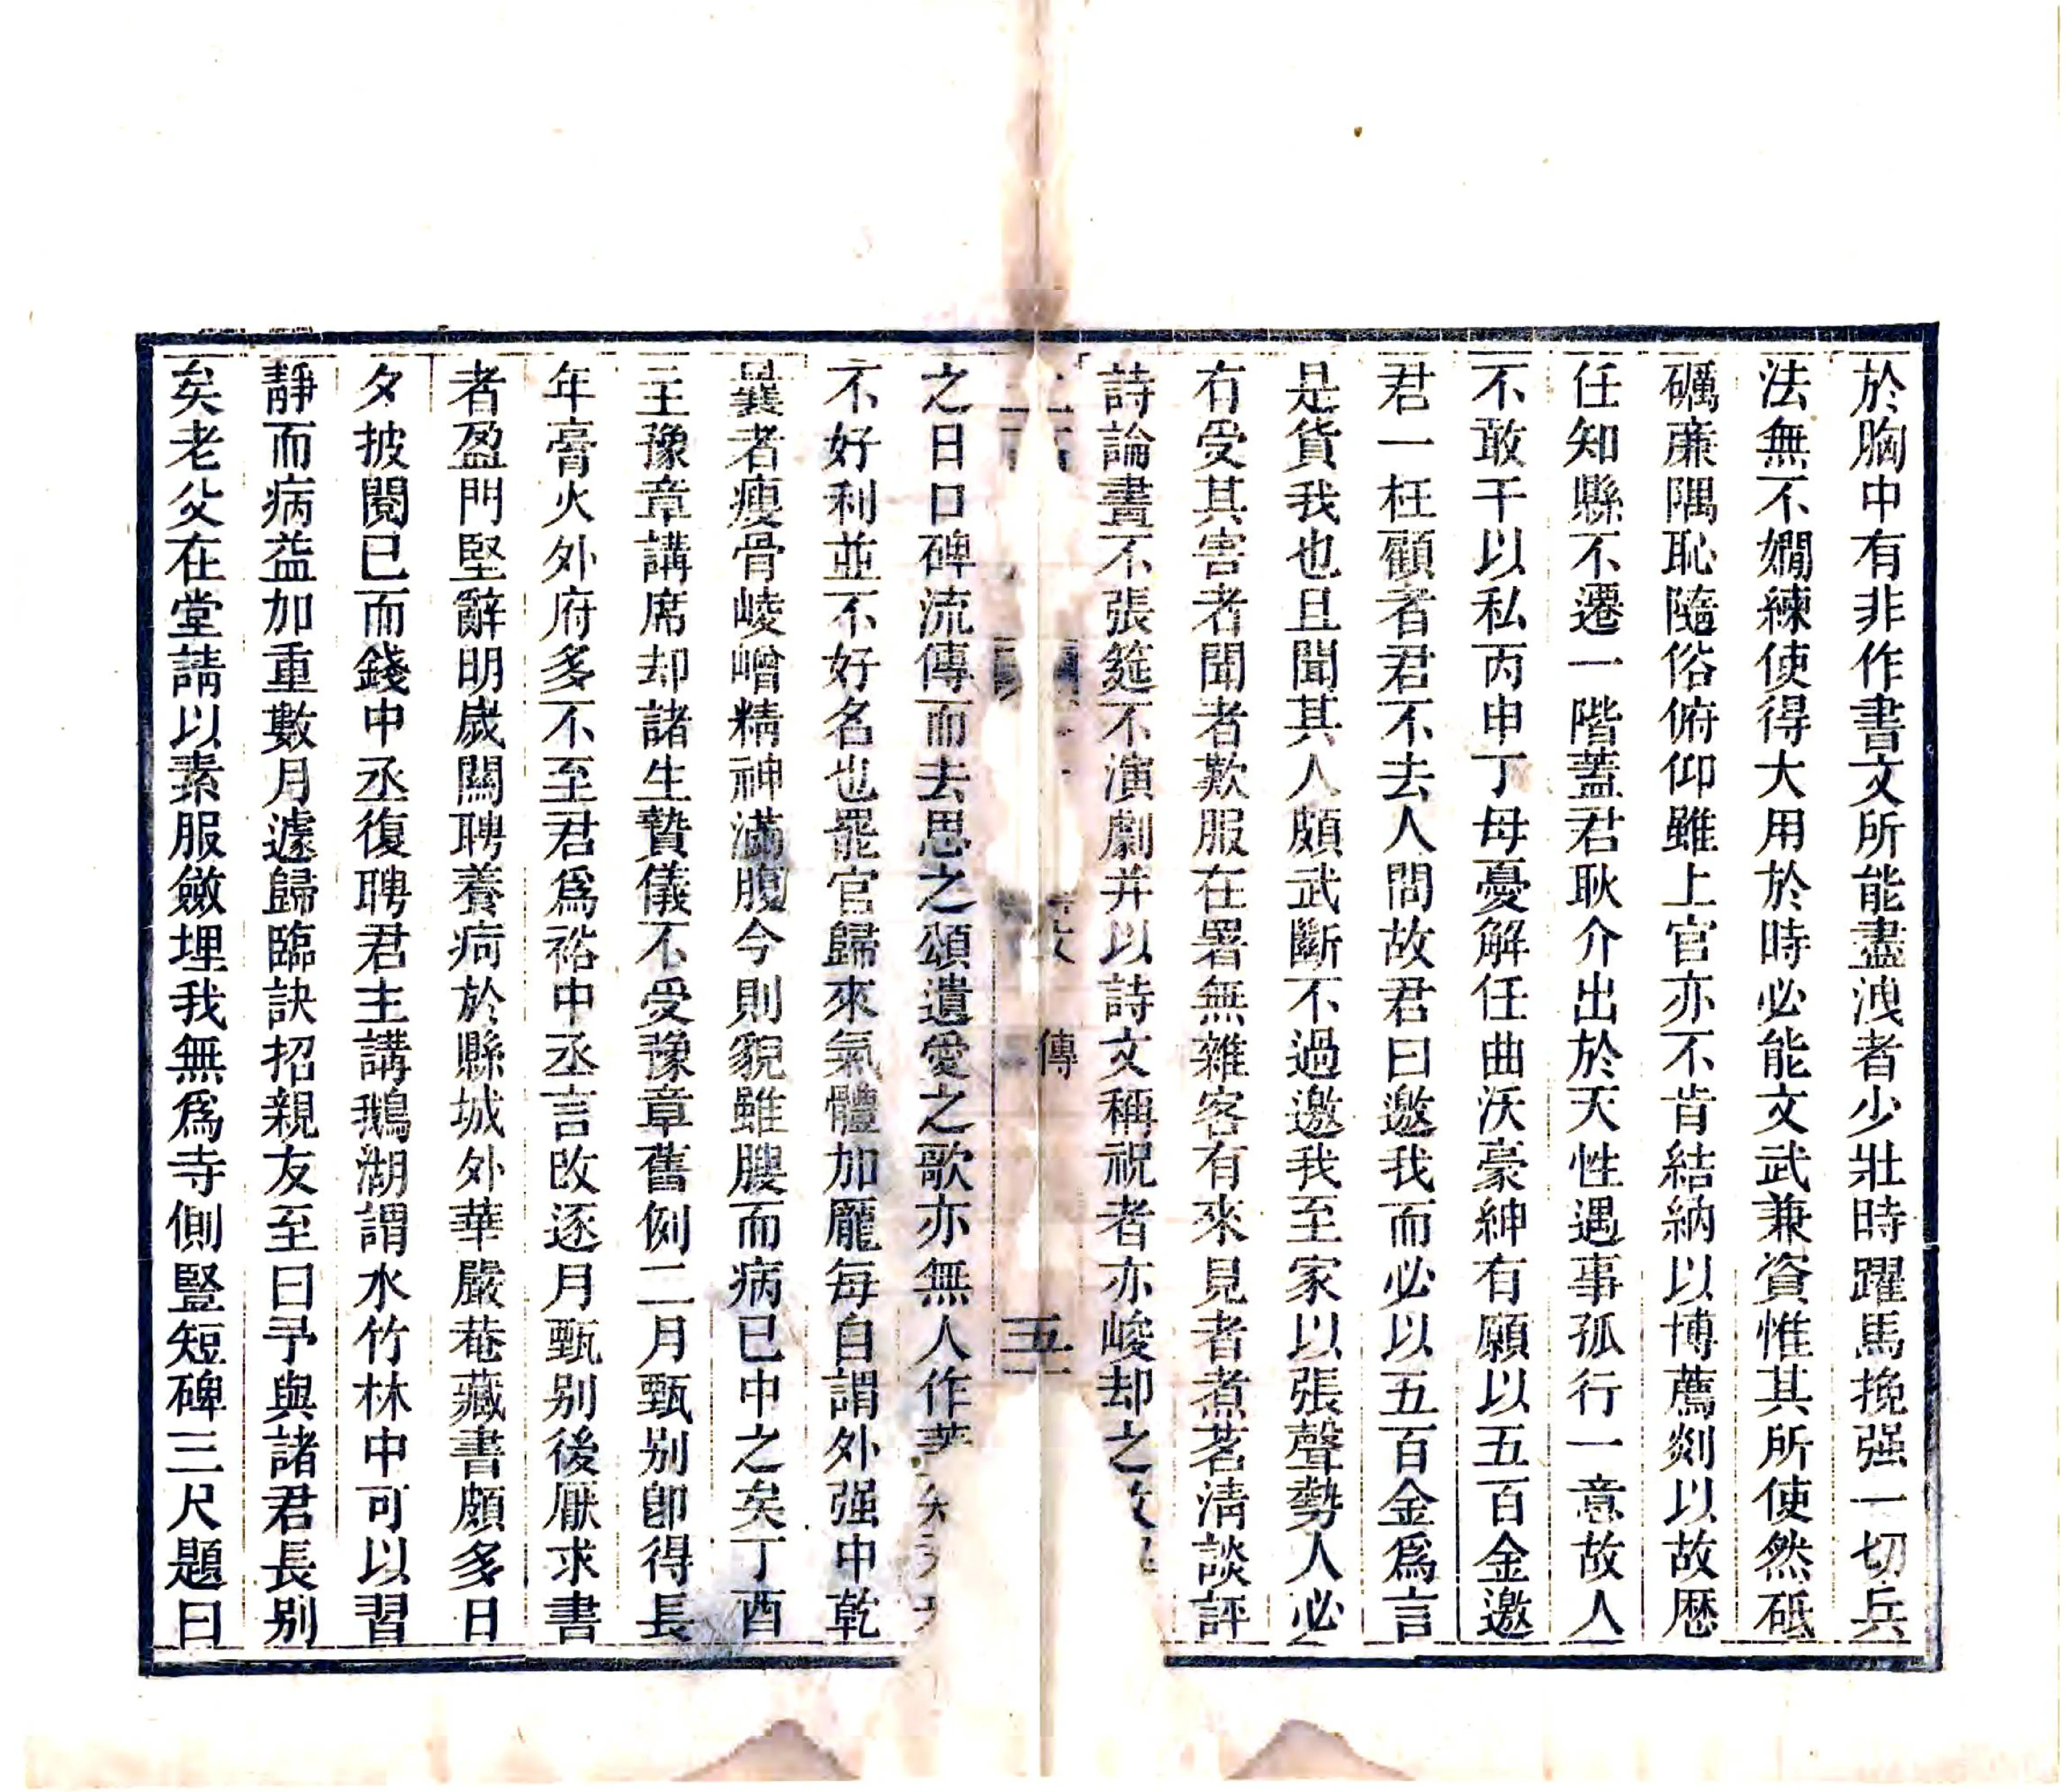 於胸中有非作書文所能盡洩者少壯時躍馬挽强一切兵
法無不嫺練使得大用於時必能文武兼資惟其所使然砥
礪廉隅恥隨俗俯仰雖上官亦不肯結納以博薦剡以故歷
任知縣不遷一階蓋君耿介出於天性遇事孤行一意故人
不敢干以私丙申丁母憂解任曲沃豪紳有願以五百金邀
君一枉顧者君不去人問故君曰邀我而必以五百金爲言
是貨我也且聞其人頗武斷不過邀我至家以張聲勢人必
有受其害者聞者歎服在署無雜客有來見者煮茗淸談評
詩論畫不張筵不演劇并以詩文稱祝者亦峻却之故
傳
五
之日口碑流傳而去思之頌遺愛之歌亦無人作
不好利並不好名也罷官歸來氣體加龐每自謂外强中乾
曩者瘦骨崚嶒精神滿腹今則貌雖腴而病已中之矣丁酉
主豫章講席却諸生贄儀不受豫章舊例二月甄别卽得長
年膏火外府多不至君爲裕中丞言改逐月甄别後厭求書
者盈門堅辭明歲關聘養疴於縣城外華嚴菴藏書頗多日
夕披閱已而錢中丞復聘君主講鵝湖謂水竹林中可以習
靜而病益加重數月遽歸臨訣招親友至曰予與諸君長别
矣老父在堂請以素服斂埋我無爲寺側豎短碑三尺題曰